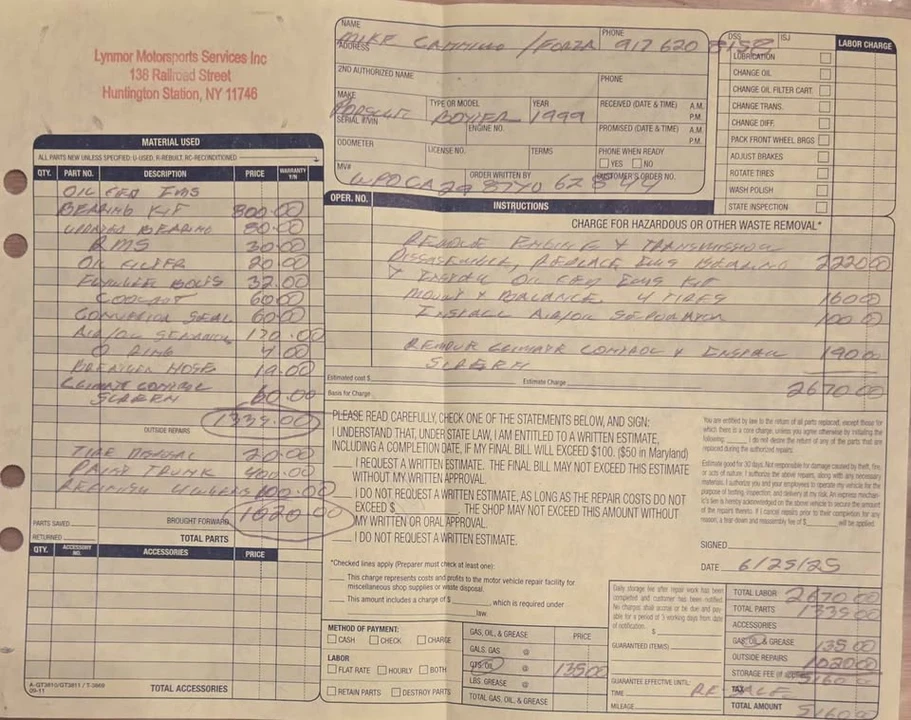 Lynmor Motorsports Services Inc
138 Railroad Street
Huntington Station, NY 11746
NAME
MIKE CAMMILLO / FORZA
PHONE
917 620 8152
ADDRESS
2ND AUTHORIZED NAME
PHONE
MAKE
PORSCHE
TYPE OR MODEL
BOXTER
YEAR
1999
RECEIVED (DATE & TIME) A.M.
P.M.
SERIAL #/VIN
ENGINE NO.
PROMISED (DATE & TIME) A.M.
P.M.
ODOMETER
LICENSE NO.
TERMS
PHONE WHEN READY
YES NO
MV#
ORDER WRITTEN BY
CUSTOMER'S ORDER NO.
DSS
ISJ
LABOR CHARGE
LUBRICATION
CHANGE OIL
CHANGE OIL FILTER CART.
CHANGE TRANS.
CHANGE DIFF.
PACK FRONT WHEEL BRGS
ADJUST BRAKES
ROTATE TIRES
WASH POLISH
STATE INSPECTION
MATERIAL USED
ALL PARTS NEW UNLESS SPECIFIED: U-USED, R-REBUILT, RC-RECONDITIONED
QTY. PART NO. DESCRIPTION PRICE WARRANTY Y/N
OIL FED IMS
BEARING KIT 800.00
UPDATED BEARING 80.00
RMS 30.00
OIL FILTER 20.00
FLYWHEEL BOLTS 32.00
COOLANT 60.00
60.00
AIR/OIL SEPARATOR 170.00
O RING 4.00
BREATHER HOSE 19.00
CLIMATE CONTROL
SCREEN 60.00
1339.00
OUTSIDE REPAIRS
TIRE DISPOSAL 20.00
PAINT TRUNK 400.00
REFINISH 4 WHEELS
1020.00
PARTS SAVED
BROUGHT FORWARD
RETURNED
TOTAL PARTS
QTY. ACCESSORY NO. ACCESSORIES PRICE
A-GT3810/GT3811 / T-3869
09-11
TOTAL ACCESSORIES
OPER. NO.
INSTRUCTIONS
CHARGE FOR HAZARDOUS OR OTHER WASTE REMOVAL*
REMOVE ENGINE & TRANSMISSION
DISSASEMBLE, REPLACE IMS BEARING 2220.00
& INSTALL OIL FED IMS KIT
MOUNT & BALANCE 4 TIRES 160.00
INSTALL AIR/OIL SEPORATOR 100.00
REMOVE CLIMATE CONTROL & INSTALL 190.00
SCREEN
Estimated cost $
Estimate Charge
2670.00
Basis for Charge
PLEASE READ CAREFULLY, CHECK ONE OF THE STATEMENTS BELOW, AND SIGN:
I UNDERSTAND THAT, UNDER STATE LAW, I AM ENTITLED TO A WRITTEN ESTIMATE,
INCLUDING A COMPLETION DATE, IF MY FINAL BILL WILL EXCEED $100. ($50 in Maryland)
I REQUEST A WRITTEN ESTIMATE. THE FINAL BILL MAY NOT EXCEED THIS ESTIMATE
WITHOUT MY WRITTEN APPROVAL.
I DO NOT REQUEST A WRITTEN ESTIMATE, AS LONG AS THE REPAIR COSTS DO NOT
EXCEED $ THE SHOP MAY NOT EXCEED THIS AMOUNT WITHOUT
MY WRITTEN OR ORAL APPROVAL.
I DO NOT REQUEST A WRITTEN ESTIMATE.
*Checked lines apply (Preparer must check at least one):
This charge represents costs and profits to the motor vehicle repair facility for
miscellaneous shop supplies or waste disposal.
This amount includes a charge of $ , which is required under
law.
You are entitled by law to the return of all parts replaced, except those for
which there is a core charge, unless you agree otherwise by initialing the
following: I do not desire the return of any of the parts that are
replaced during the authorized repairs.
Estimate good for 30 days. Not responsible for damage caused by theft, fire,
or acts of nature. I authorize the above repairs, along with any necessary
materials. I authorize you and your employees to operate my vehicle for the
purpose of testing, inspection, and delivery at my risk. An express mechan-
ic's lien is hereby acknowledged on the above vehicle to secure the amount
of the repairs thereto. If I cancel repairs prior to their completion for any
reason, a tear-down and reassembly fee of $ will be applied.
SIGNED
DATE 6/25/25
METHOD OF PAYMENT:
CASH CHECK CHARGE
LABOR
FLAT RATE HOURLY BOTH
RETAIN PARTS DESTROY PARTS
GAS, OIL, & GREASE PRICE
GALS. GAS @
QTS. OIL @ 135.00
LBS. GREASE @
TOTAL GAS, OIL, & GREASE
Daily storage fee after repair work has been
completed and customer has been notified.
No charges shall accrue or be due and pay-
able for a period of 3 working days from date
of notification.
$
GUARANTEED ITEM(S)
GUARANTEE EFFECTIVE UNTIL:
TIME
MILEAGE
TOTAL LABOR 2670.00
TOTAL PARTS 1339.00
ACCESSORIES
GAS, OIL & GREASE 135.00
OUTSIDE REPAIRS 1020.00
STORAGE FEE 5160.00
TAX RESALE
TOTAL AMOUNT 5160.00